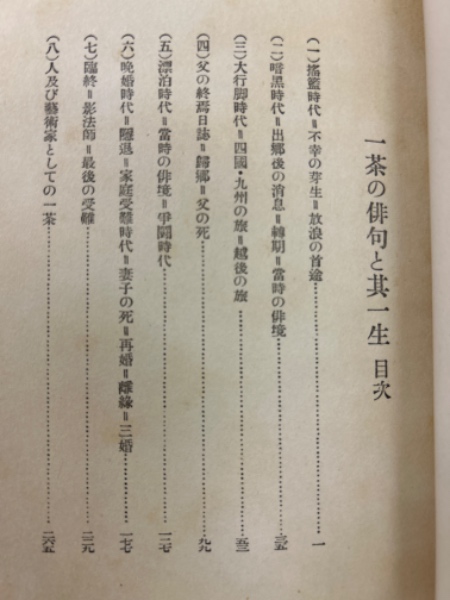 一茶の俳句と其一生 目次
(一)搖籃時代=不幸の芽生=放浪の首途…………一
(二)暗黑時代=出鄕後の消息=轉期=當時の俳境…………三五
(三)大行脚時代=四國・九州の旅=越後の旅…………五三
(四)父の終焉日誌=歸鄕=父の死…………九九
(五)漂泊時代=當時の俳境=爭鬪時代…………一二七
(六)晩婚時代=隱退=家庭受難時代=妻子の死=再婚=離緣=三婚…………一七七
(七)臨終=影法師=最後の受難…………二二九
(八)人及び藝術家としての一茶…………二六五